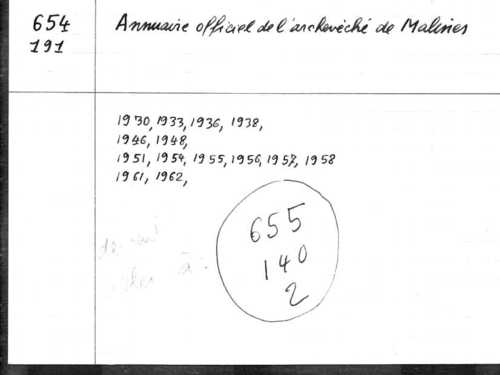 654
191
Annuaire officiel de l'archevêché de Malines
1930, 1933, 1936, 1938,
1946, 1948,
1951, 1954, 1955, 1956, 1957, 1958
1961, 1962,
655
140
2